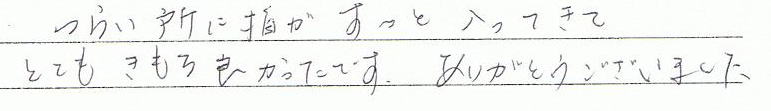 つらい所に指がすーっと入ってきて
とてもきもち良かったです。ありがとうございました。